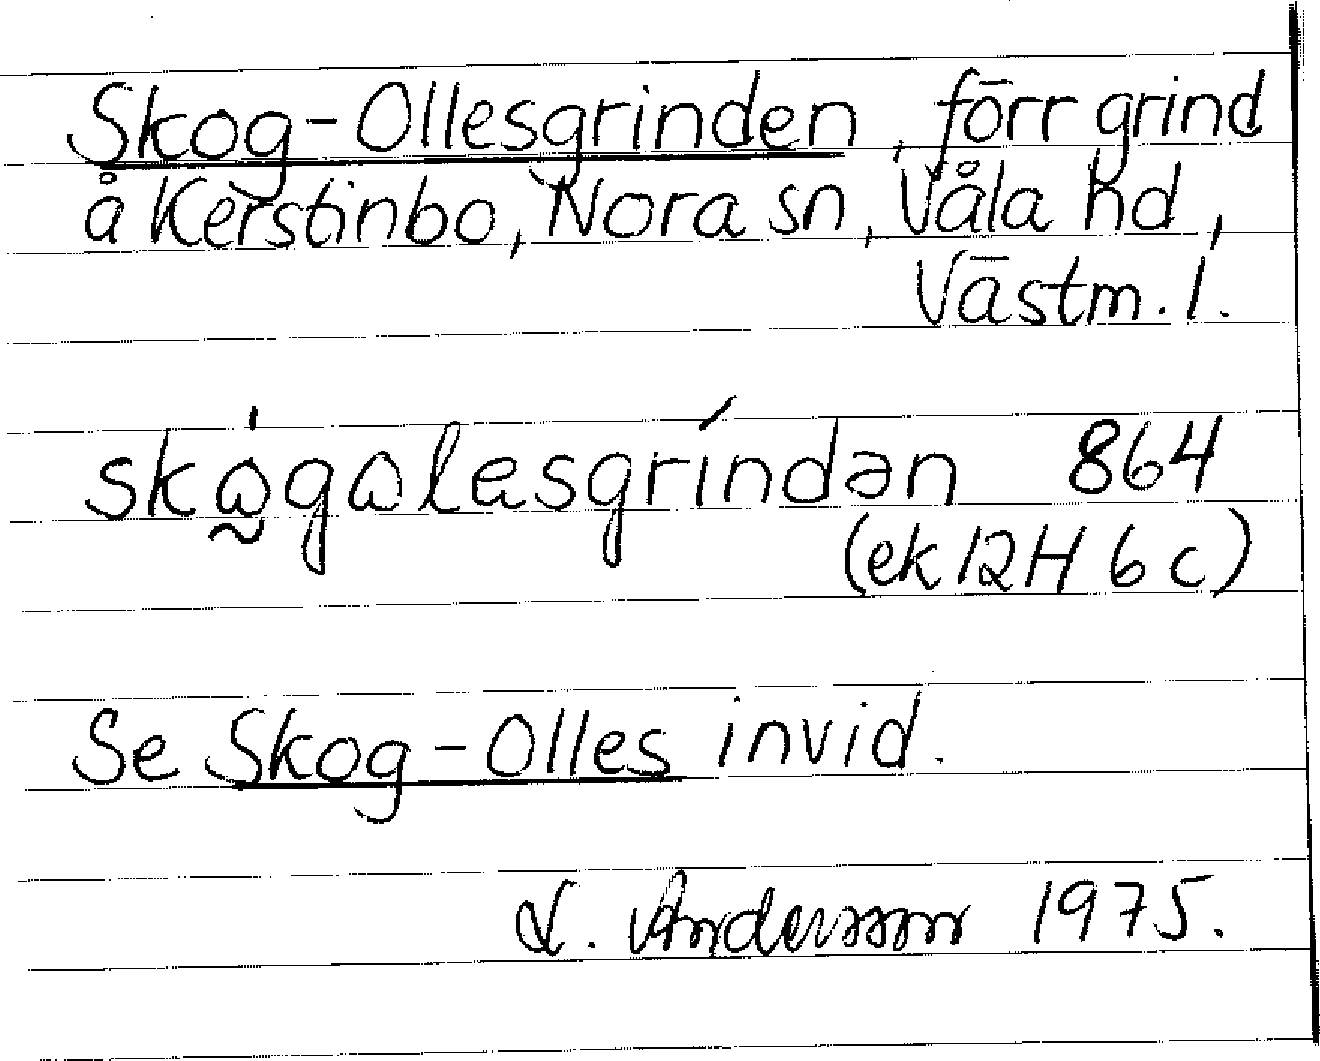 Skog-Ollesgrinden, förr grind
å Kerstinbo, Nora sn, Våla hd,
Västm. l.
864
(ek 12H 6 c)
Se Skog-Olles invid.
L. Andersson 1975.